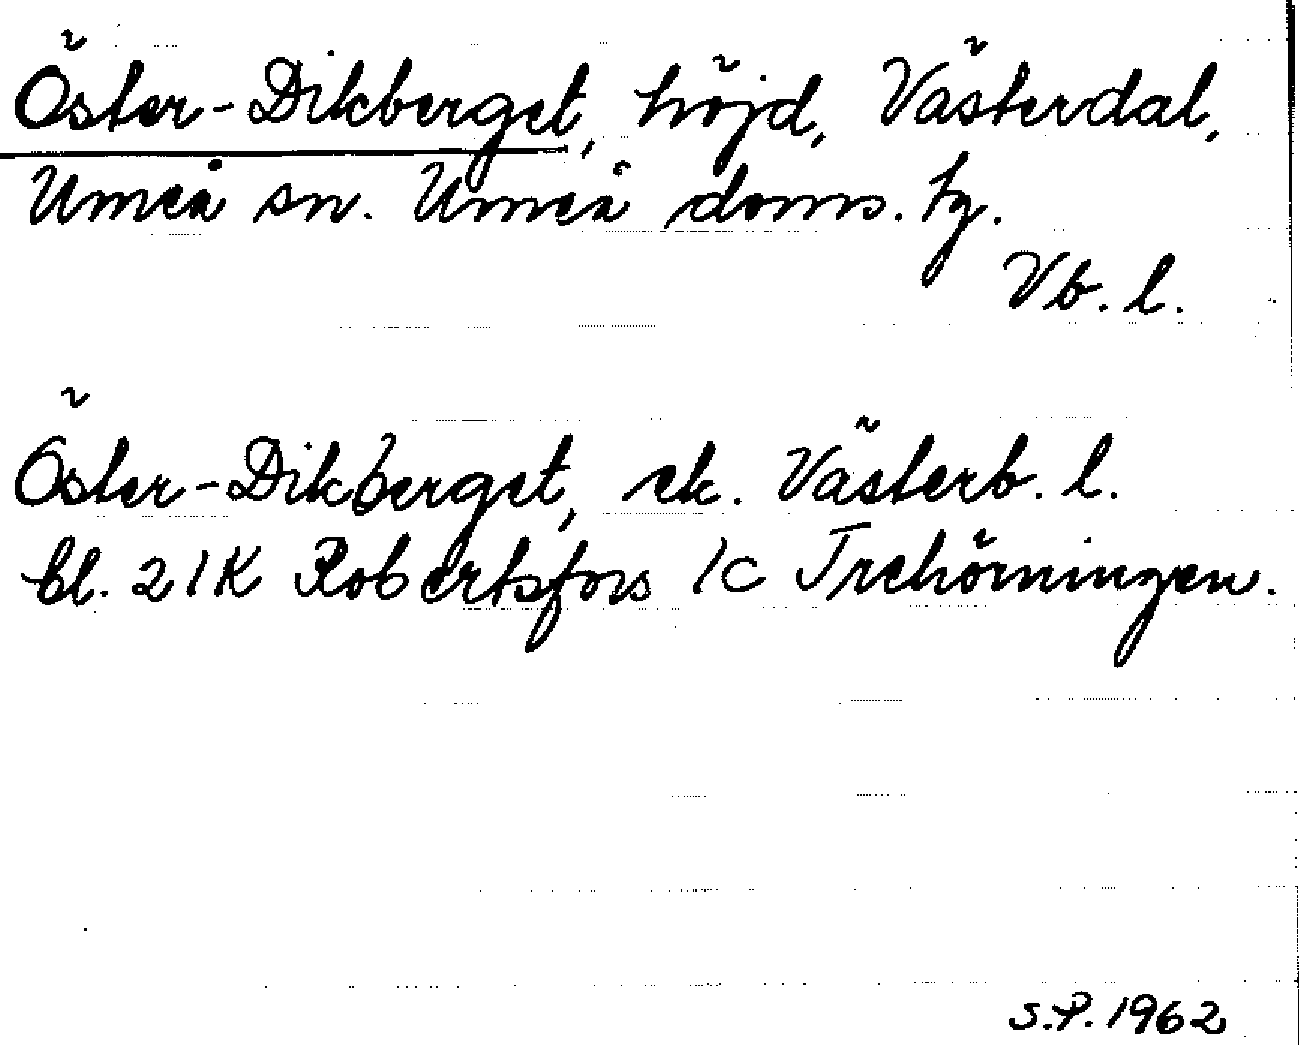 Öster-Dikberget, höjd, Västerdal,
Umeå sn. Umeå doms. tg.
Vb. l.
Öster-Dikberget, ek. Västerb. l.
bl. 21K Robertsfors 1c Trehörningen.
S.P. 1962